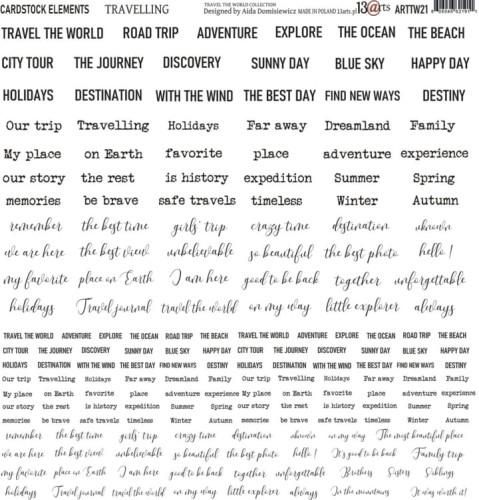 TRAVEL THE WORLD COLLECTION
CARDSTOCK ELEMENTS TRAVELLING Designed by Aida Domisiewicz MADE IN POLAND 13arts.pl 13@rts ARTTW21
TRAVEL THE WORLD ROAD TRIP ADVENTURE EXPLORE THE OCEAN THE BEACH
CITY TOUR THE JOURNEY DISCOVERY SUNNY DAY BLUE SKY HAPPY DAY
HOLIDAYS DESTINATION WITH THE WIND THE BEST DAY FIND NEW WAYS DESTINY
Our trip Travelling Holidays Far away Dreamland Family
My place on Earth favorite place adventure experience
our story the rest is history expedition Summer Spring
memories be brave safe travels timeless Winter Autumn
remember the best time girls' trip crazy time destination uknown
we are here the best view unbelievable so beautiful the best photo hello !
my favorite place on Earth I am here good to be back together unforgettable
holidays Travel journal travel the world on my way little explorer always
TRAVEL THE WORLD ROAD TRIP ADVENTURE EXPLORE THE OCEAN THE BEACH TRAVEL THE WORLD ADVENTURE EXPLORE THE OCEAN ROAD TRIP THE BEACH
CITY TOUR THE JOURNEY DISCOVERY SUNNY DAY BLUE SKY HAPPY DAY CITY TOUR THE JOURNEY DISCOVERY SUNNY DAY BLUE SKY HAPPY DAY
HOLIDAYS DESTINATION WITH THE WIND THE BEST DAY FIND NEW WAYS DESTINY HOLIDAYS DESTINATION WITH THE WIND THE BEST DAY FIND NEW WAYS DESTINY
Our trip Travelling Holidays Far away Dreamland Family Our trip Travelling Holidays Far away Dreamland Family
My place on Earth favorite place adventure experience My place on Earth favorite place adventure experience
our story the rest is history expedition Summer Spring our story the rest is history expedition Summer Spring
memories be brave safe travels timeless Winter Autumn memories be brave safe travels timeless Winter Autumn
remember the best time girls' trip crazy time destination uknown on my way The most beautiful place
we are here the best view unbelievable so beautiful the best photo hello ! It's good to be back Family trip
my favorite place on Earth I am here good to be back together unforgettable Brothers Sisters Siblings
holidays Travel journal travel the world on my way little explorer always In the mountains It was worth it!